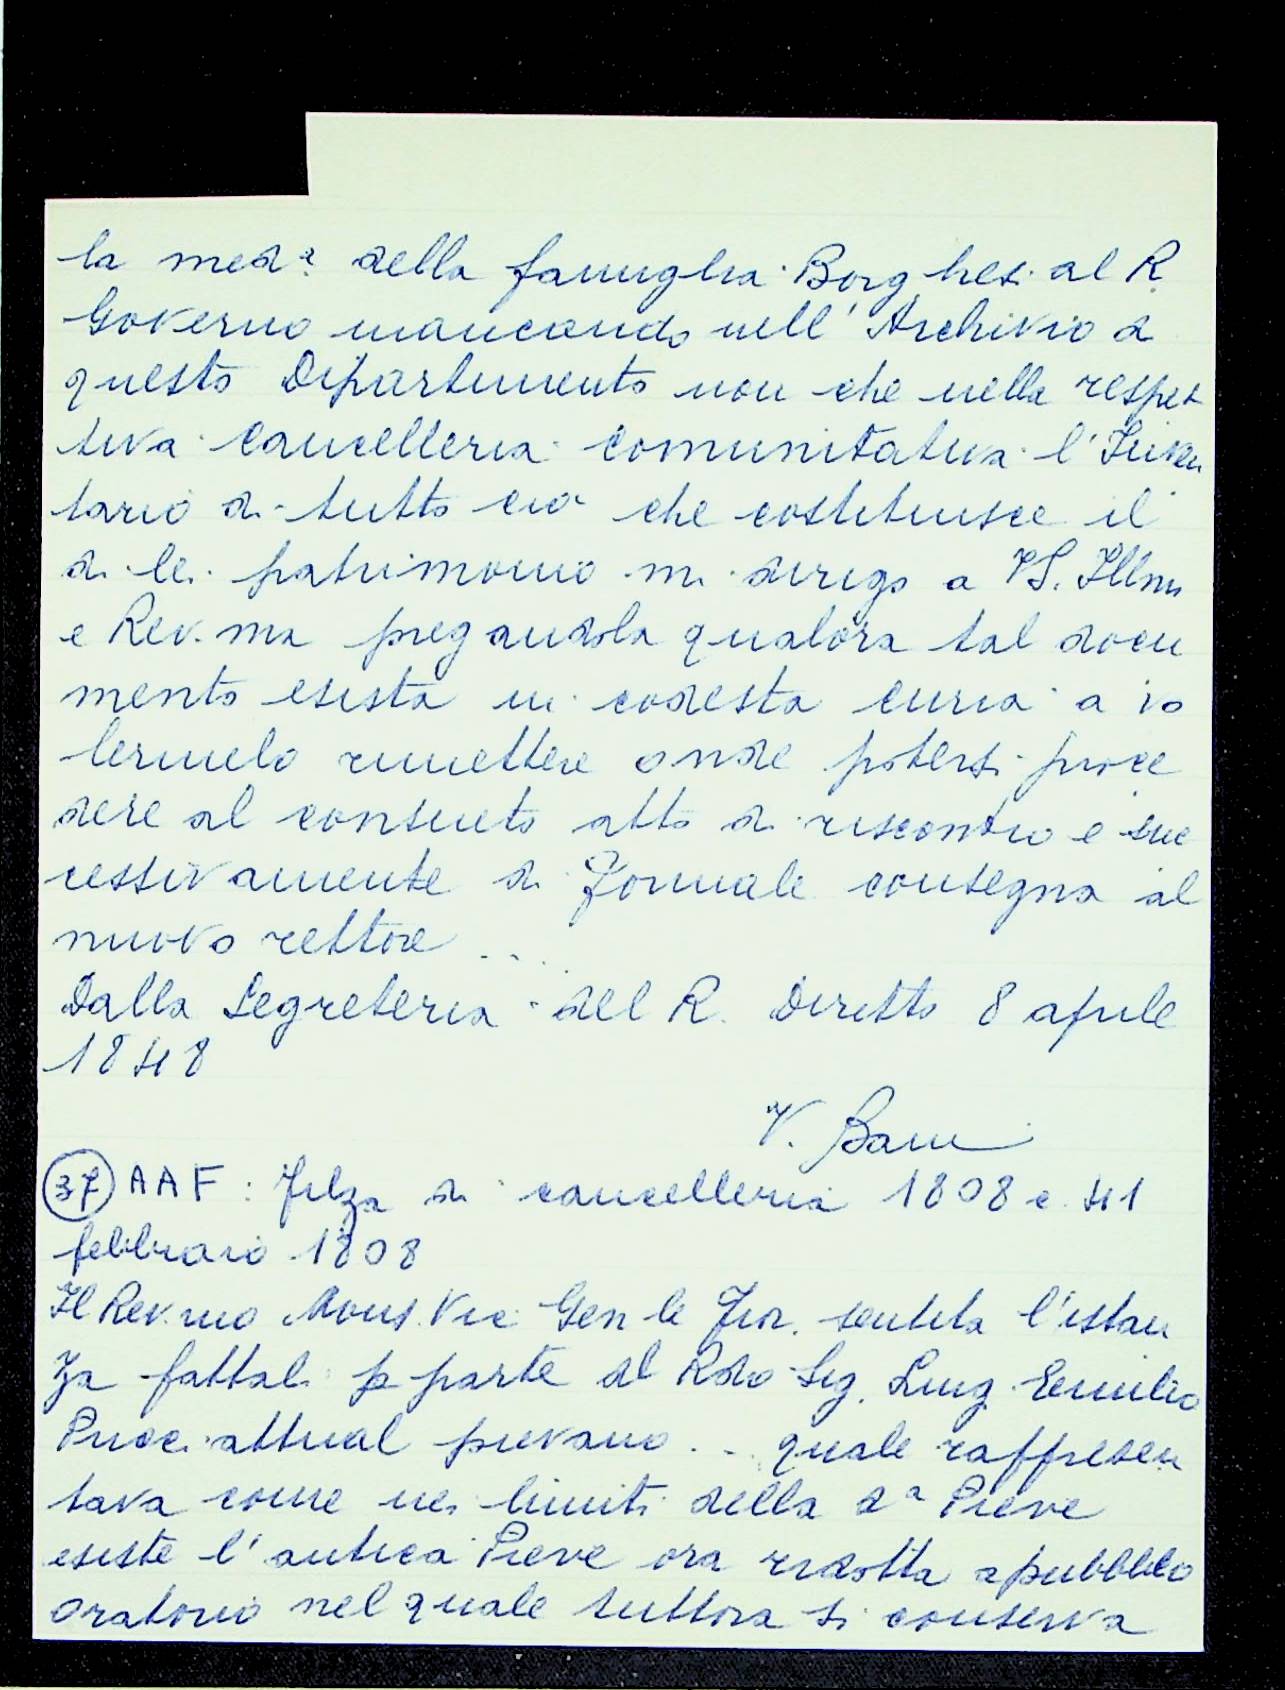 la med.a della famiglia Borghesi al R.
Governo mancando nell'Archivio di
questo Dipartimento non che nella respet
tiva cancelleria comunitativa l'Inven
tario di tutto ciò che costituisce il
di lei patrimonio mi dirigo a VS. Ill.ma
e Rev.ma pregandola qualora tal docu
mento esista in codesta curia a vo
lermelo rimettere onde potersi proce
dere al consueto atto di riscontro e suc
cessivamente di formale consegna al
nuovo rettore ....
Dalla Segreteria del R. Diritto 8 aprile
1848
V. Bani
37 AAF: Filza di cancelleria 1808 c. 41
febbraio 1808
Il Rev.mo Mons. Vic Gen le Fior. sentita l'istan
za fattali p parte del Rdo Sig. Luigi Emilio
Pucci attual pievano ... quale rappresen
tava come nei limiti della da Pieve
esiste l'antica Pieve ora ridotta a pubblico
oratorio nel quale tuttora si conserva